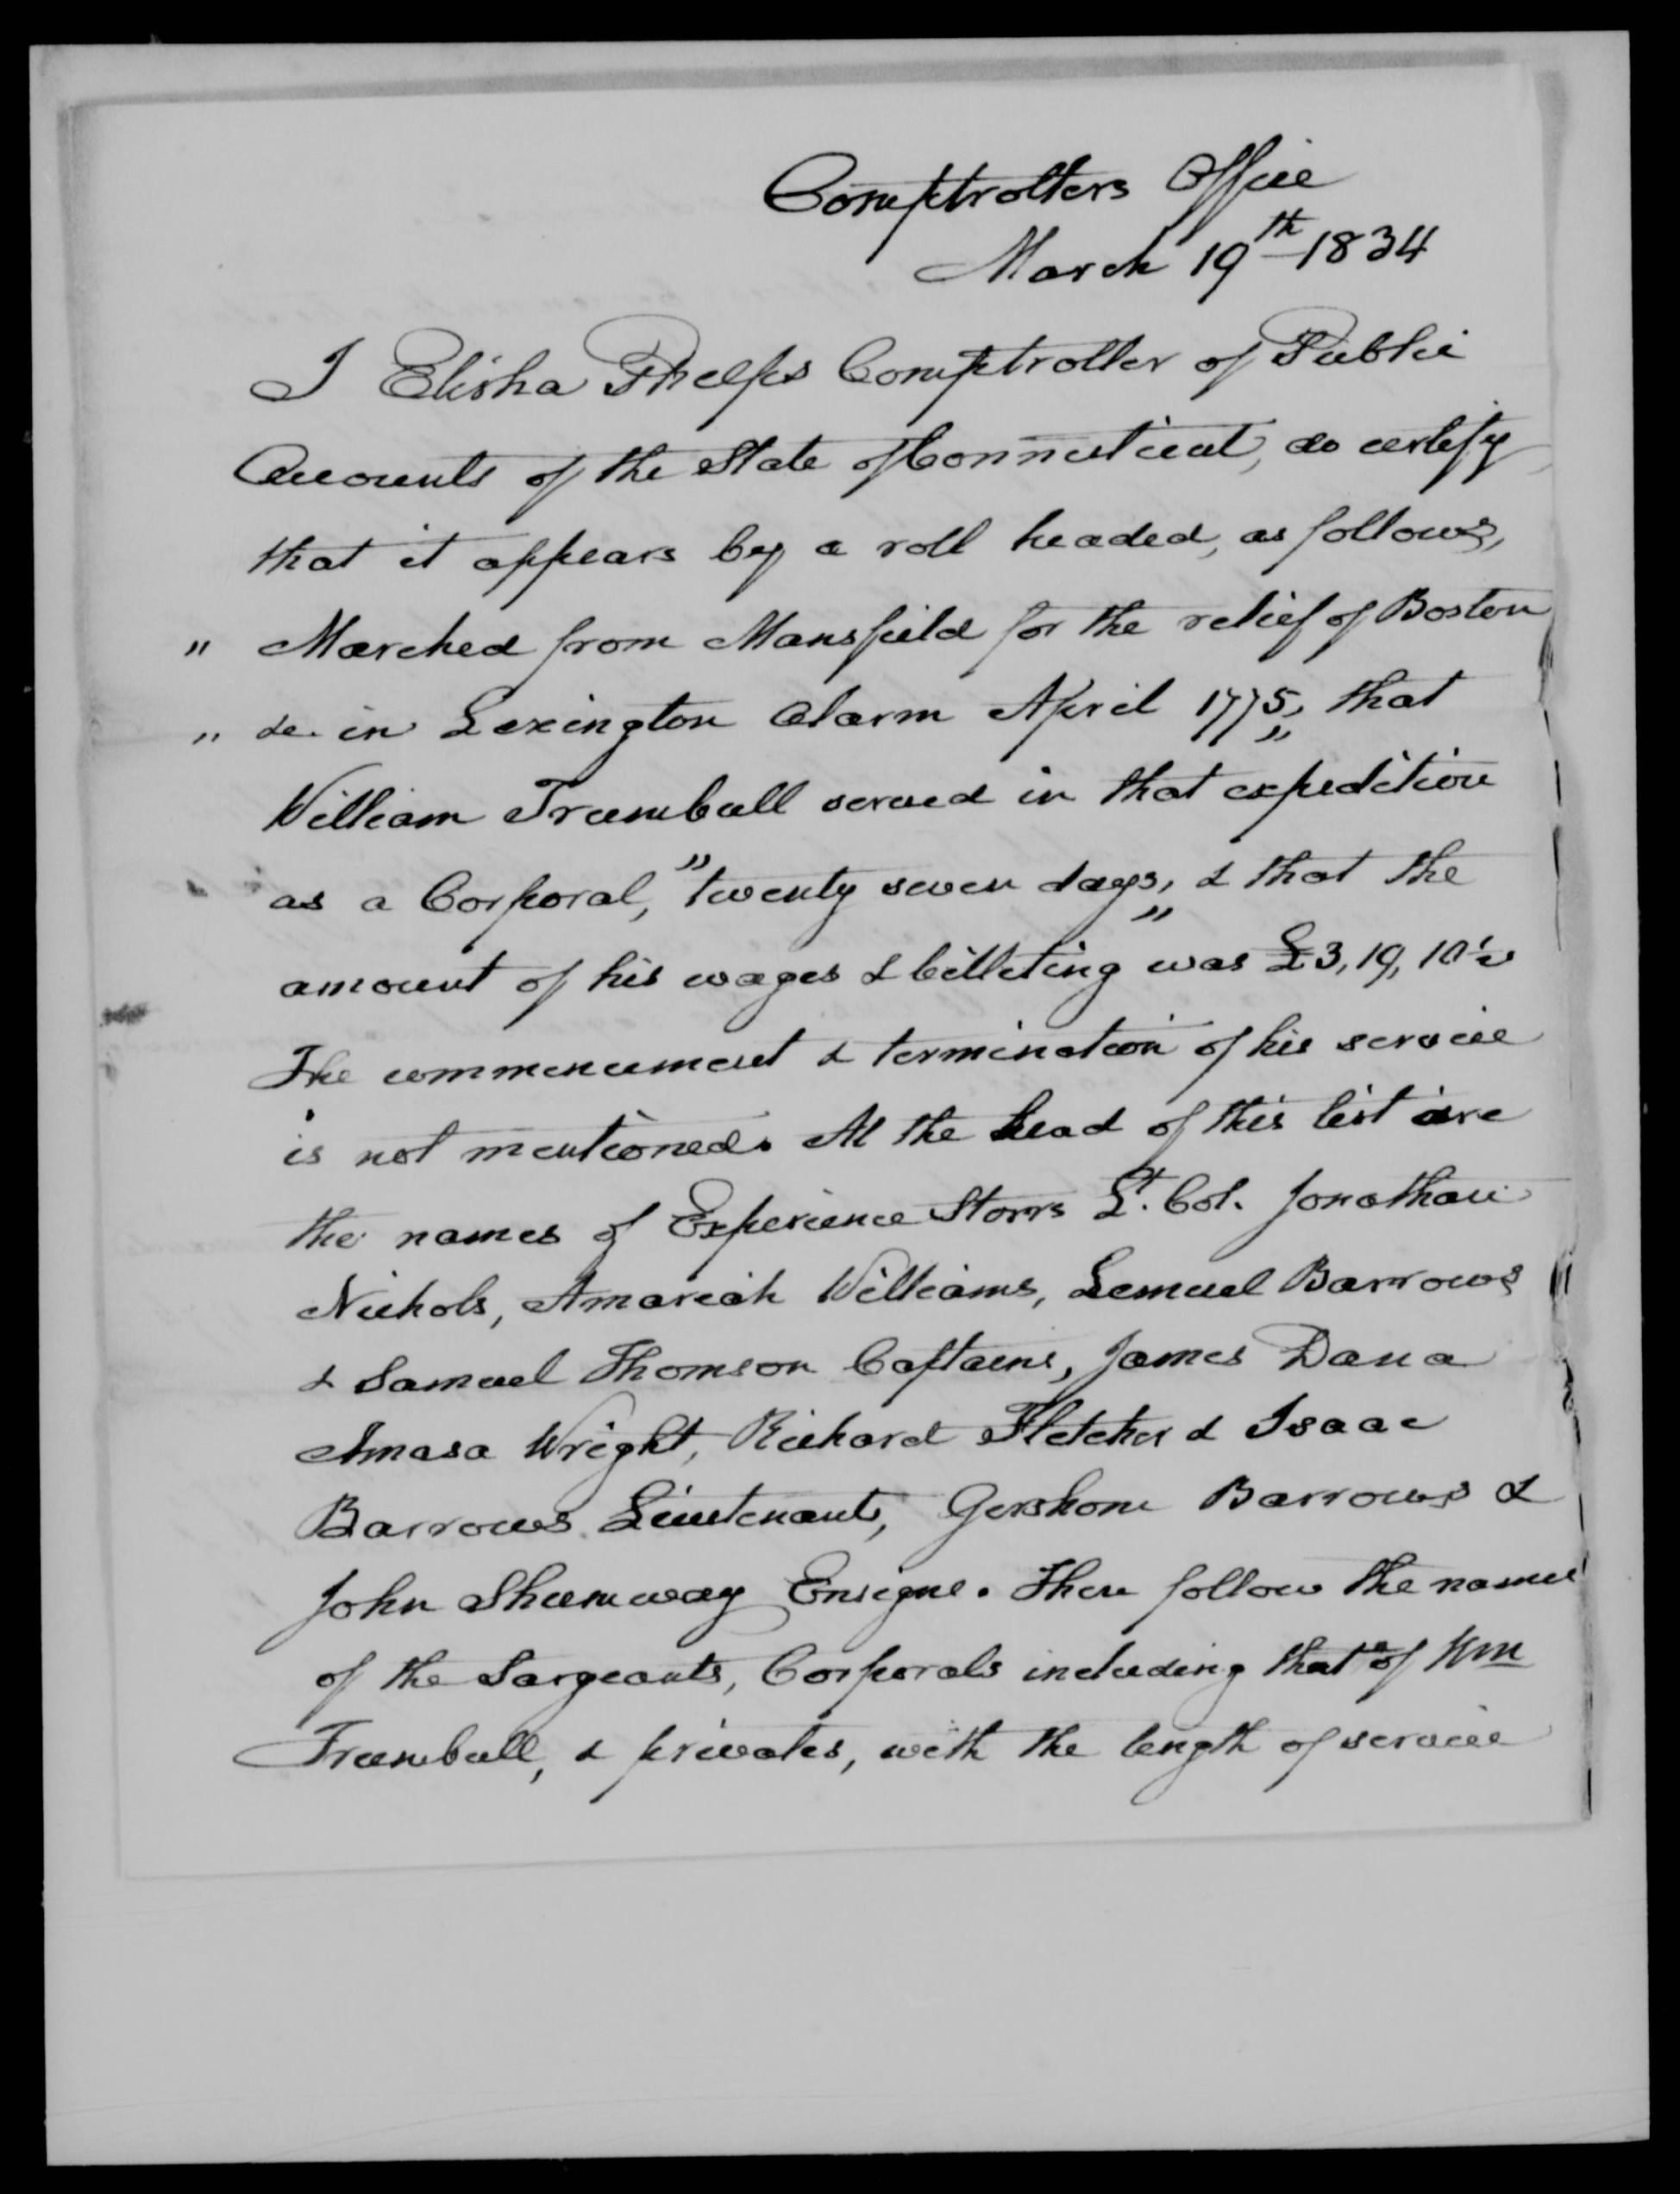 Comptrollers Office
March 19th 1834
I Elisha Phelps Comptroller of Public
Accounts of the State of Connecticut, do certify
that it appears by a roll headed, as follows,
" Marched from Mansfield for the relief of Boston
" &c. in Lexington Alarm April 1775," that
William Trumball served in that expedition
as a Corporal, "twenty seven days," & that the
amount of his wages & billeting was £3, 19, 10½
The commencement & termination of his service
is not mentioned. At the head of this list are
the names of Experience Storrs Lt. Col. Jonathan
Nichols, Amariah Williams, Lemuel Barrows
& Samuel Thomson Captains, James Dana
Amasa Wright, Richard Fletcher & Isaac
Barrows Lieutenants, Gershom Barrows &
John Shumway Ensigns. Then follow the names
of the Sargeants, Corporals including that of Wm
Trumball, & privates, with the length of service